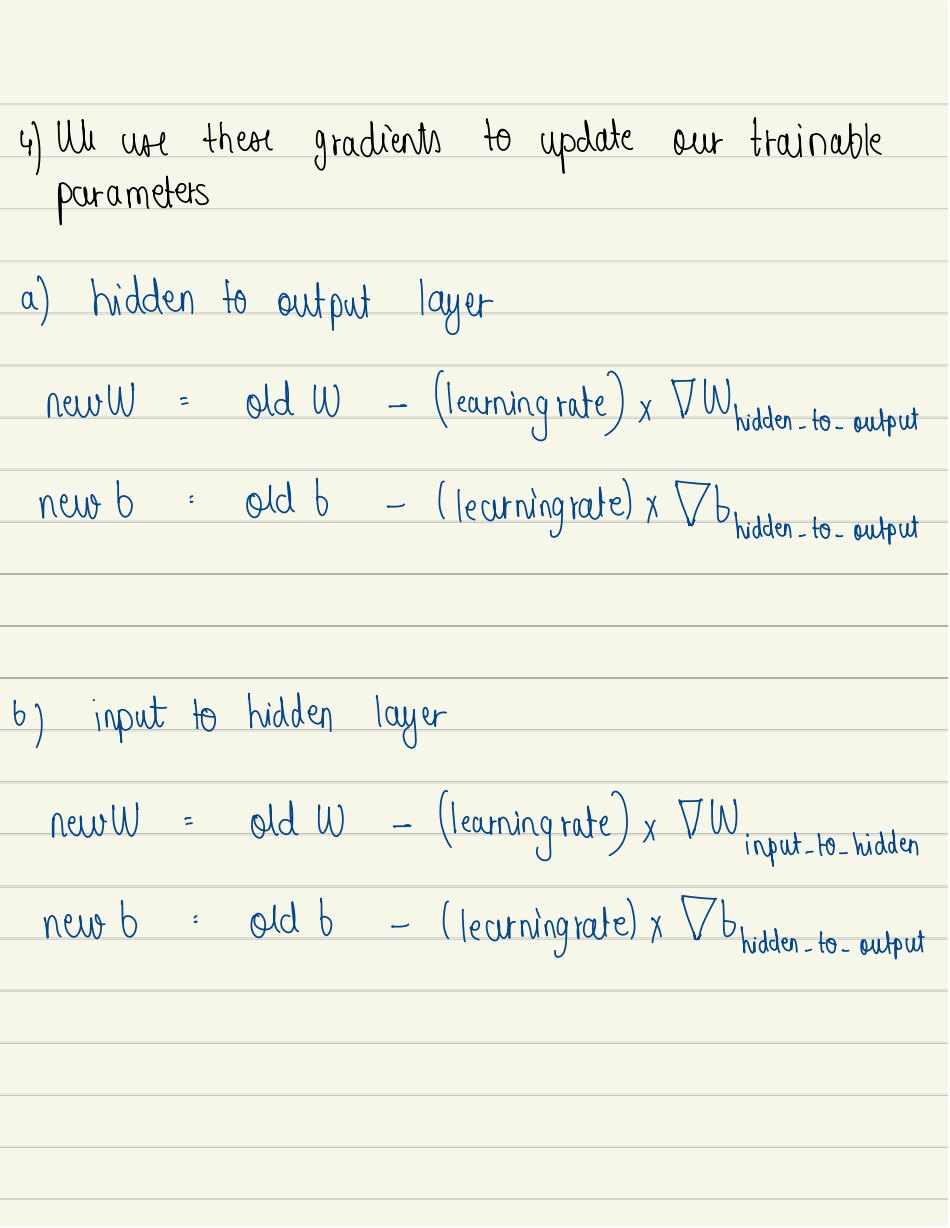 4) We use these gradients to update our trainable
parameters
a) hidden to output layer
new W = old W - (learning rate) x ∇W hidden_to_output
new b = old b - (learning rate) x ∇b hidden_to_output
b) input to hidden layer
new W = old W - (learning rate) x ∇W input_to_hidden
new b = old b - (learning rate) x ∇b hidden_to_output